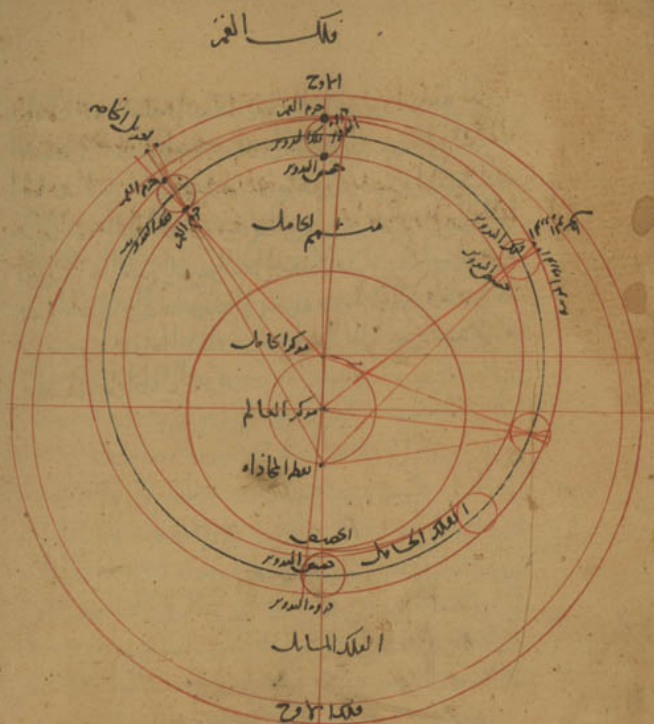 فلك القمر
الاوج
جرم القمر
فلك التدوير
حضيض التدوير
تعديل الخاصه
جرم القمر
جرم القمر
فلك التدوير
متمم الحامل
فلك التدوير
حضيض التدوير
مركز الحامل
مركز العالم
نقطه المحاذاه
الفلك الحامل
الحضيض
حضيض التدوير
ذروه التدوير
الفلك المايل
فلك الاوج